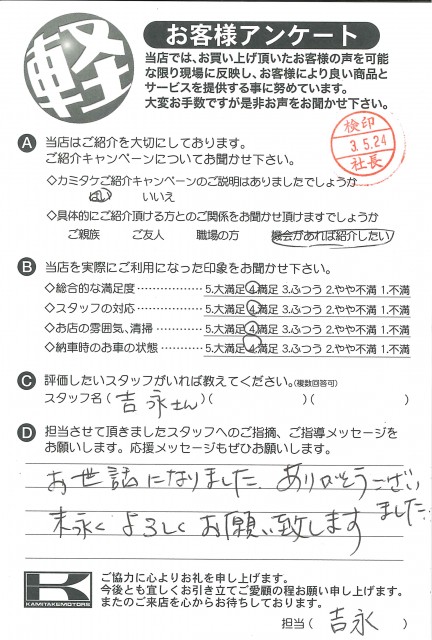 軽
お客様アンケート
当店では、お買い上げ頂いたお客様の声を可能
な限り現場に反映し、お客様により良い商品と
サービスを提供する事に努めています。
大変お手数ですが是非お声をお聞かせ下さい。
検印
3.5.24
社長
A 当店はご紹介を大切にしております。
ご紹介キャンペーンについてお聞かせ下さい。
◇カミタケご紹介キャンペーンのご説明はありましたでしょうか
はい いいえ
◇具体的にご紹介頂ける方とのご関係をお聞かせ頂けますでしょうか
ご親族 ご友人 職場の方 機会があれば紹介したい
B 当店を実際にご利用になった印象をお聞かせ下さい。
◇総合的な満足度……………5.大満足 4.満足 3.ふつう 2.やや不満 1.不満
◇スタッフの対応……………5.大満足 4.満足 3.ふつう 2.やや不満 1.不満
◇お店の雰囲気、清掃………5.大満足 4.満足 3.ふつう 2.やや不満 1.不満
◇納車時のお車の状態………5.大満足 4.満足 3.ふつう 2.やや不満 1.不満
C 評価したいスタッフがいれば教えてください。(複数回答可)
スタッフ名(吉永さん)( )( )
D 担当させて頂きましたスタッフへのご指摘、ご指導メッセージを
お願いします。応援メッセージもぜひお願いします。
お世話になりました。ありがとうござい
ました。
末永く よろしく お願い致します
K
KAMITAKEMOTORS
ご協力に心よりお礼を申し上げます。
今後とも宜しくお引き立てご愛顧の程お願い申し上げます。
またのご来店を心からお待ちしております。
担当(吉永)